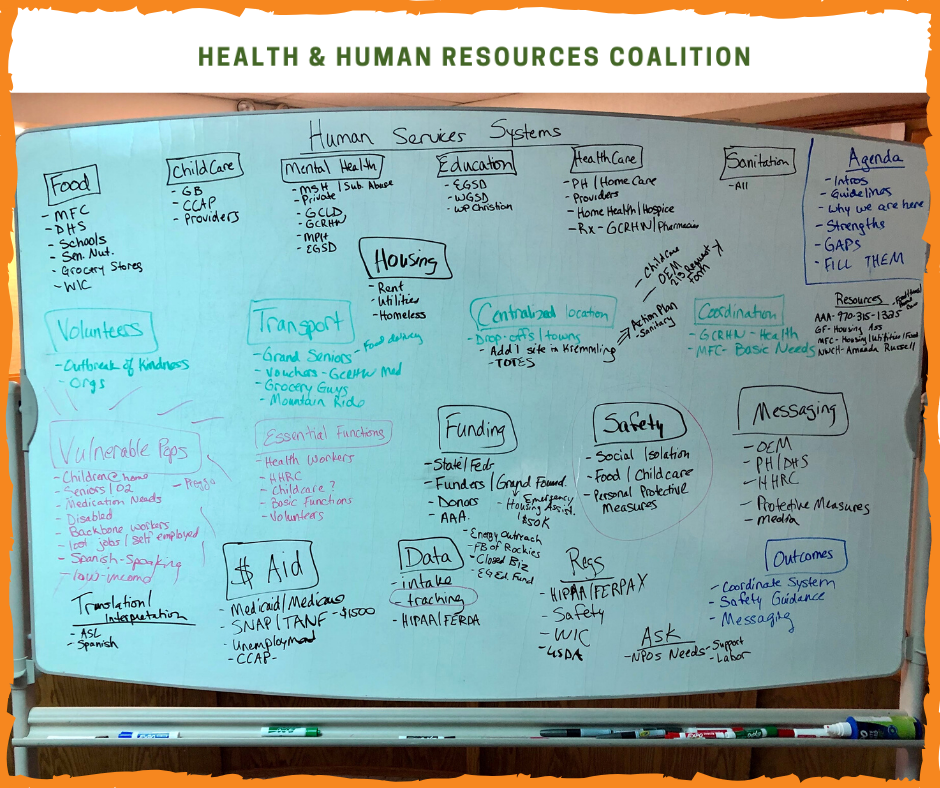 HEALTH & HUMAN RESOURCES COALITION
Human Services Systems
Food
- MFC
- DHS
- Schools
- Sen. Nut.
- Grocery Stores
- WIC
ChildCare
- GB
- CCAP
- Providers
Mental Health
- MSH / Sub. Abuse
- Private
- GCLD
- GCRHN
- MPH
- EGSD
Education
- EGSD
- WGSD
- WP Christian
HealthCare
- PH / Home Care
Providers
- Home Health / Hospice
- Rx - GCRHN / Pharmacies
Sanitation
- All
Agenda
- Intros
- Guidelines
- Why we are here
- Strengths
- GAPs
- FILL THEM
Housing
- Rent
- Utilities
- Homeless
Volunteers
- Outbreak of Kindness
- Orgs
Transport
- Grand Seniors - Food delivery
- Vouchers - GCRHN Med
- Grocery Guys
- Mountain Ride
Centralized location
- Drop-offs / towns
- Add 1 site in Kremmling
- TOTES
Action Plan
- Sanitary
- Childcare
- OEM
213 Request
Form
Coordination
- GCRHN - Health
- MFC - Basic Needs
Resources
AAA - 970-315-1325
GF - Housing Ass
MFC - Housing / Utilities / Food
NWCH - Amanda Russell
Vulnerable Pops
- Children @ home
- Seniors / O2
- Medication Needs
- Disabled
- Backbone workers
- lost jobs / self employed
- Spanish-Speaking
- low-income
Translation /
Interpretation
- ASL
- Spanish
Essential Functions
- Health Workers
- HHRC
- Childcare ?
- Basic Functions
- Volunteers
Funding
- State / Feds
- Funders / Grand Found.
- Housing Emergency
Assist.
$50K
- Donors
- AAA.
- Energy Outreach
- FB of Rockies
- Closed Biz
- EGEA Fund
Safety
- Social Isolation
- Food / Childcare
- Personal Protective
Measures
Messaging
- OEM
- PH / DHS
- HHRC
- Protective Measures
- media
$ Aid
- Medicaid / Medicare
- SNAP / TANF - $1500
- Unemployment
- CCAP -
Data
- intake
- tracking
- HIPAA / FERDA
Regs
- HIPAA / FERPA X
- Safety
- WIC
- USDA
Ask
- NPOs Needs - Support
- Labor
Outcomes
- Coordinate System
- Safety Guidance
- Messaging